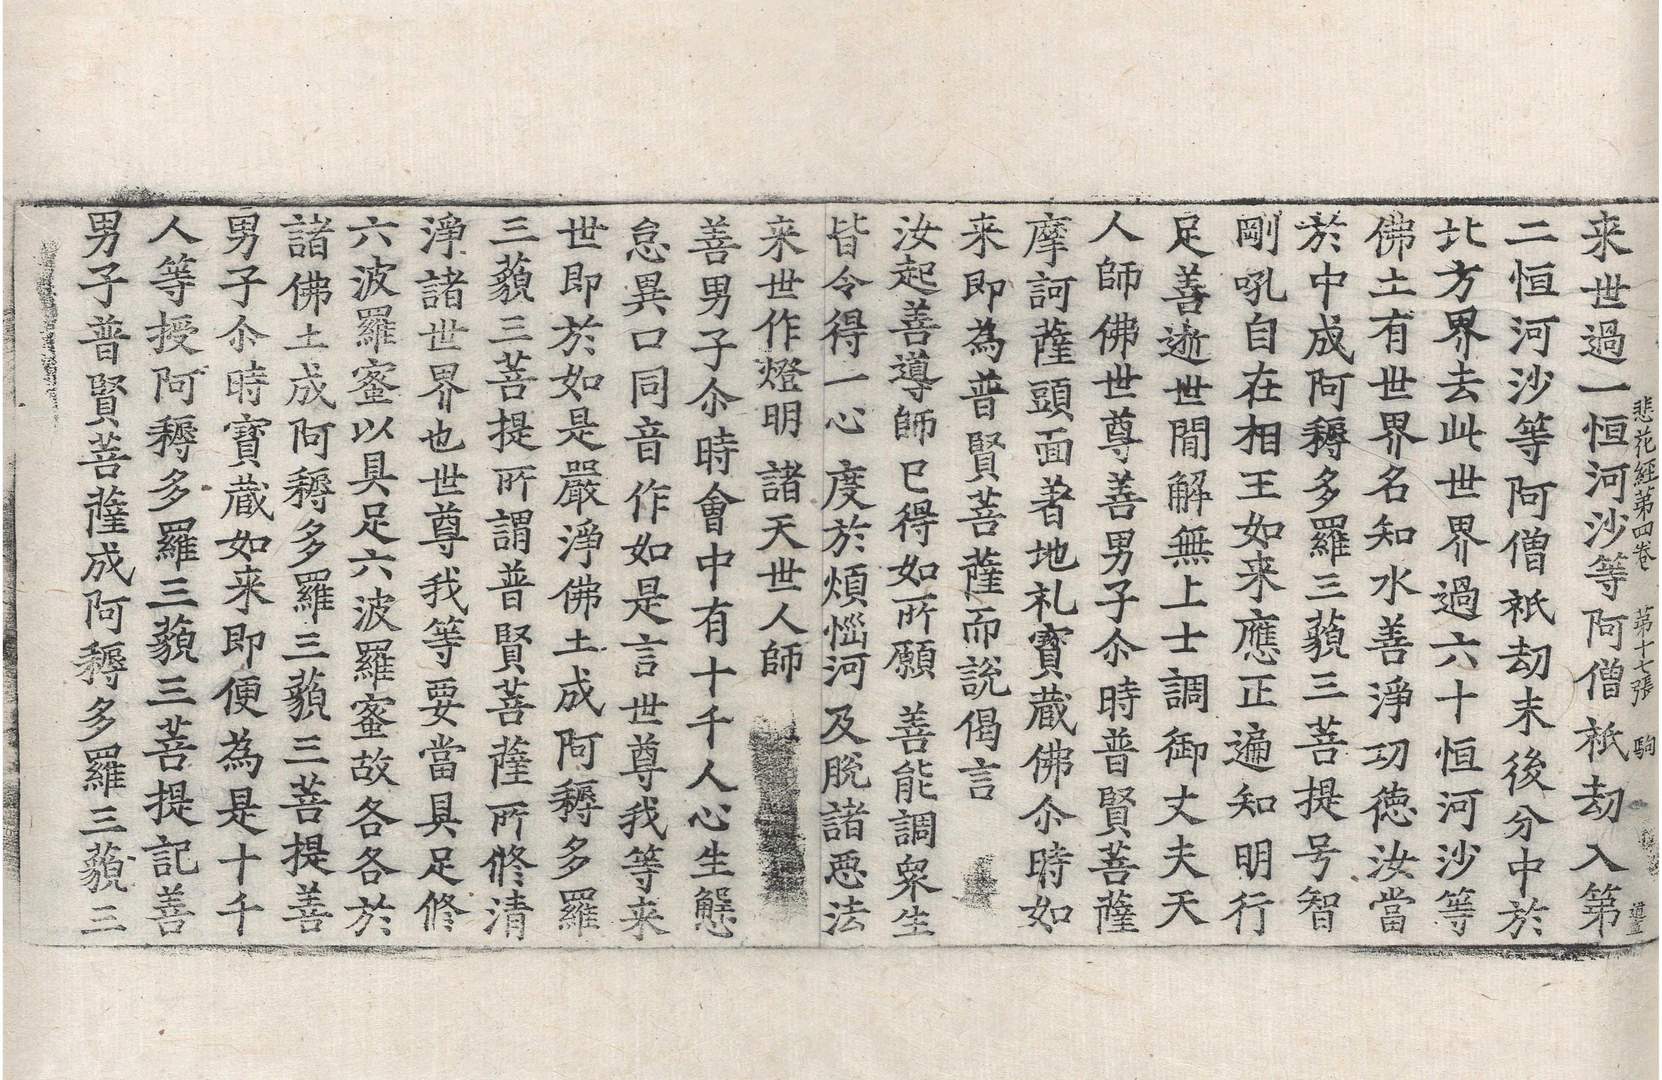 悲花經第四卷 第十七張 駒
来世過一恒河沙等阿僧祇劫入第
二恒河沙等阿僧祇劫末後分中於
北方界去此世界過六十恒河沙等
佛土有世界名知水善淨功徳汝當
於中成阿耨多羅三藐三菩提号智
剛吼自在相王如来應正遍知明行
足善逝世間解無上士調御丈夫天
人師佛世尊善男子尒時普賢菩薩
摩訶薩頭面著地礼寳藏佛尒時如
来即為普賢菩薩而說偈言
汝起善導師 已得如所願 善能調衆生
皆令得一心 度於煩惱河 及脫諸惡法
来世作燈明 諸天世人師
善男子尒時會中有十千人心生懈
怠異口同音作如是言世尊我等来
世即於如是嚴淨佛土成阿耨多羅
三藐三菩提所謂普賢菩薩所修清
淨諸世界也世尊我等要當具足修
六波羅蜜以具足六波羅蜜故各各於
諸佛土成阿耨多羅三藐三菩提善
男子尒時寳藏如来即便為是十千
人等授阿耨多羅三藐三菩提記善
男子普賢菩薩成阿耨多羅三藐三